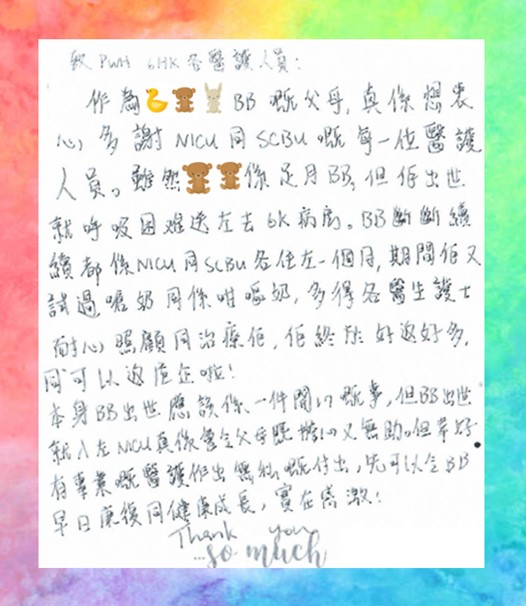 致 PWH 6HK 各醫護人員:
作為🦆🧸🐰BB 嘅父母,真係想衷
心多謝 NICU 同 SCBU 嘅每一位醫護
人員。雖然🧸🧸係足月BB,但佢出世
就呼吸困難送左去 6K 病房。BB斷斷續
續都係NICU同SCBU各住左一個月,期間佢又
試過嗆奶同係咁嘔奶,多得各醫生護士
耐心照顧同治療佢,佢終於好返好多,
同可以返屋企啦!
本身BB出世應該係一件開心嘅事,但BB出世
就入左NICU真係會令父母既擔心又無助。但幸好
有專業嘅醫護作出無私嘅付出,先可以令BB
早日康復同健康成長,實在感激!
Thank you
...so much